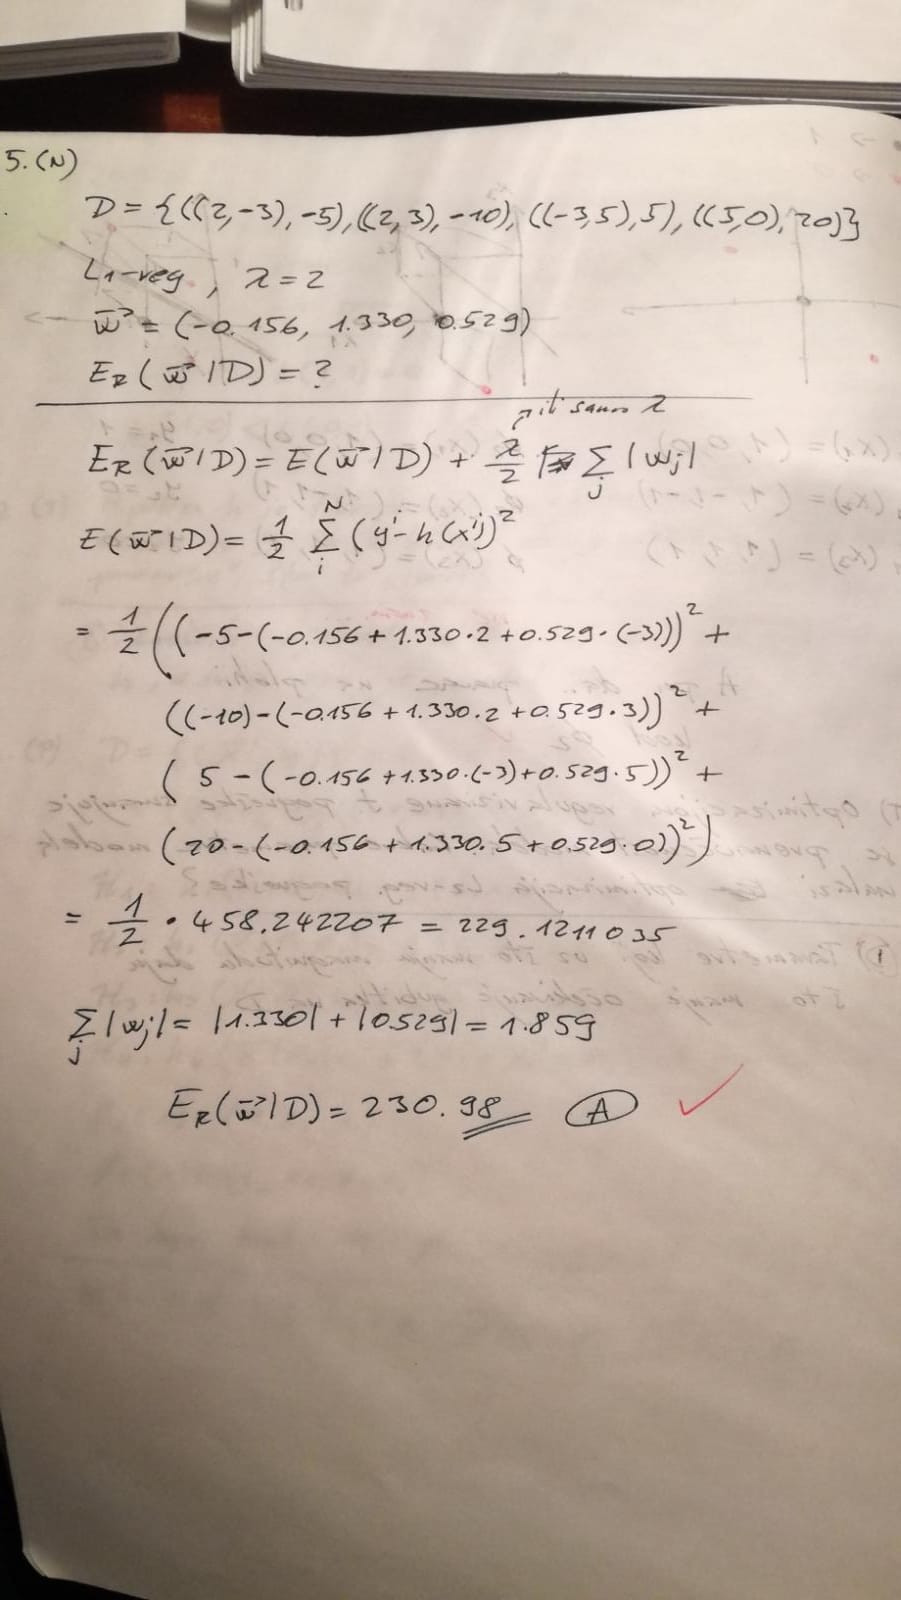 5. (N)
D = {((2,-3), -5), ((2, 3), -10), ((-3,5), 5), ((5,0), 20)}
L1-reg, λ = 2
w⃗ = (-0.156, 1.330, 0.529)
E_R(w⃗|D) = ?
samo λ
E_R(w⃗|D) = E(w⃗|D) + λ/2 Σ_j |w_j|
E(w⃗|D) = 1/2 Σ_i^N (y^i - h(x^i))^2
= 1/2 ((-5-(-0.156+1.330·2+0.529·(-3)))^2 +
((-10)-(-0.156+1.330·2+0.529·3))^2 +
(5-(-0.156+1.330·(-3)+0.529·5))^2 +
(20-(-0.156+1.330·5+0.529·0))^2)
= 1/2 · 458.242207 = 229.1211035
Σ_j |w_j| = |1.330| + |0.529| = 1.859
E_R(w⃗|D) = 230.98 A ✓